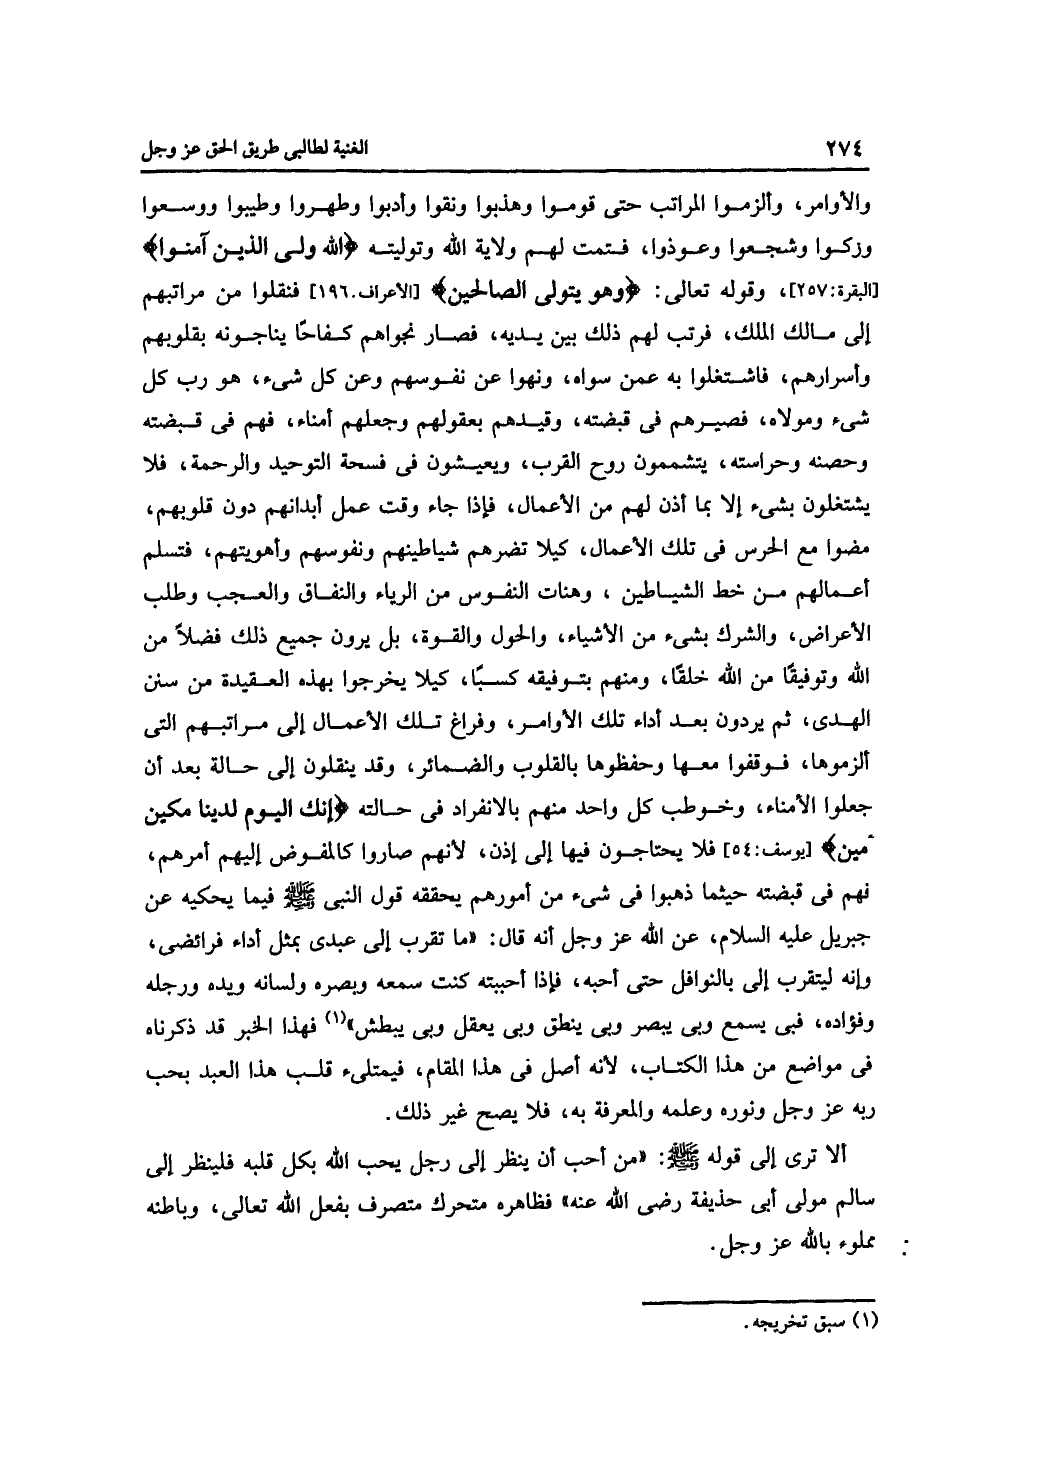 ٢٧٤
الغنية لطالبى طريق الحق عز وجل
والأوامر، وألزموا المراتب حتى قوموا وهذبوا ونقوا وأدبوا وطهروا وطيبوا ووسعوا
وزكوا وشجعوا وعوذوا، فتمت لهم ولاية الله وتوليته ﴿الله ولى الذين آمنوا﴾
[البقرة:٢٥٧]، وقوله تعالى: ﴿وهو يتولى الصالحين﴾ [الأعراف.١٩٦] فنقلوا من مراتبهم
إلى مالك الملك، فرتب لهم ذلك بين يديه، فصار نجواهم كفاحًا يناجونه بقلوبهم
وأسرارهم، فاشتغلوا به عمن سواه، ونهوا عن نفوسهم وعن كل شىء، هو رب كل
شىء ومولاه، فصيرهم فى قبضته، وقيدهم بعقولهم وجعلهم أمناء، فهم فى قبضته
وحصنه وحراسته، يتشممون روح القرب، ويعيشون فى فسحة التوحيد والرحمة، فلا
يشتغلون بشىء إلا بما أذن لهم من الأعمال، فإذا جاء وقت عمل أبدانهم دون قلوبهم،
مضوا مع الحرس فى تلك الأعمال، كيلا تضرهم شياطينهم ونفوسهم وأهويتهم، فتسلم
أعمالهم من خط الشياطين ، وهنات النفوس من الرياء والنفاق والعجب وطلب
الأعراض، والشرك بشىء من الأشياء، والحول والقوة، بل يرون جميع ذلك فضلاً من
الله وتوفيقًا من الله خلقًا، ومنهم بتوفيقه كسبًا، كيلا يخرجوا بهذه العقيدة من سنن
الهدى، ثم يردون بعد أداء تلك الأوامر، وفراغ تلك الأعمال إلى مراتبهم التى
ألزموها، فوقفوا معها وحفظوها بالقلوب والضمائر، وقد ينقلون إلى حالة بعد أن
جعلوا الأمناء، وخوطب كل واحد منهم بالانفراد فى حالته ﴿إنك اليوم لدينا مكين
أمين﴾ [يوسف:٥٤] فلا يحتاجون فيها إلى إذن، لأنهم صاروا كالمفوض إليهم أمرهم،
نهم فى قبضته حيثما ذهبوا فى شىء من أمورهم يحققه قول النبى ﷺ فيما يحكيه عن
جبريل عليه السلام، عن الله عز وجل أنه قال: «ما تقرب إلى عبدى بمثل أداء فرائضى،
وإنه ليتقرب إلى بالنوافل حتى أحبه، فإذا أحببته كنت سمعه وبصره ولسانه ويده ورجله
وفؤاده، فبى يسمع وبى يبصر وبى ينطق وبى يعقل وبى يبطش»(١) فهذا الخبر قد ذكرناه
فى مواضع من هذا الكتاب، لأنه أصل فى هذا المقام، فيمتلىء قلب هذا العبد بحب
ربه عز وجل ونوره وعلمه والمعرفة به، فلا يصح غير ذلك.
ألا ترى إلى قوله ﷺ: «من أحب أن ينظر إلى رجل يحب الله بكل قلبه فلينظر إلى
سالم مولى أبى حذيفة رضى الله عنه» فظاهره متحرك متصرف بفعل الله تعالى، وباطنه
مملوء بالله عز وجل.
(١) سبق تخريجه.